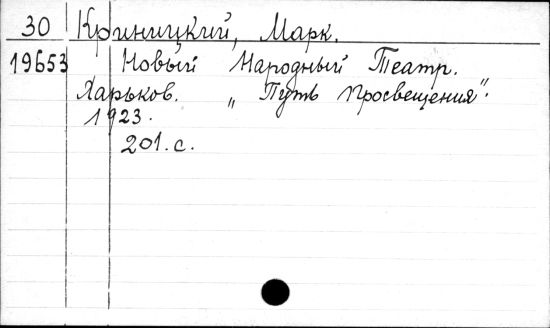 30 Криницкий, Марк.
19653 Новый Народный Театр.
Харьков. „Путь просвещения".
1923.
201.с.